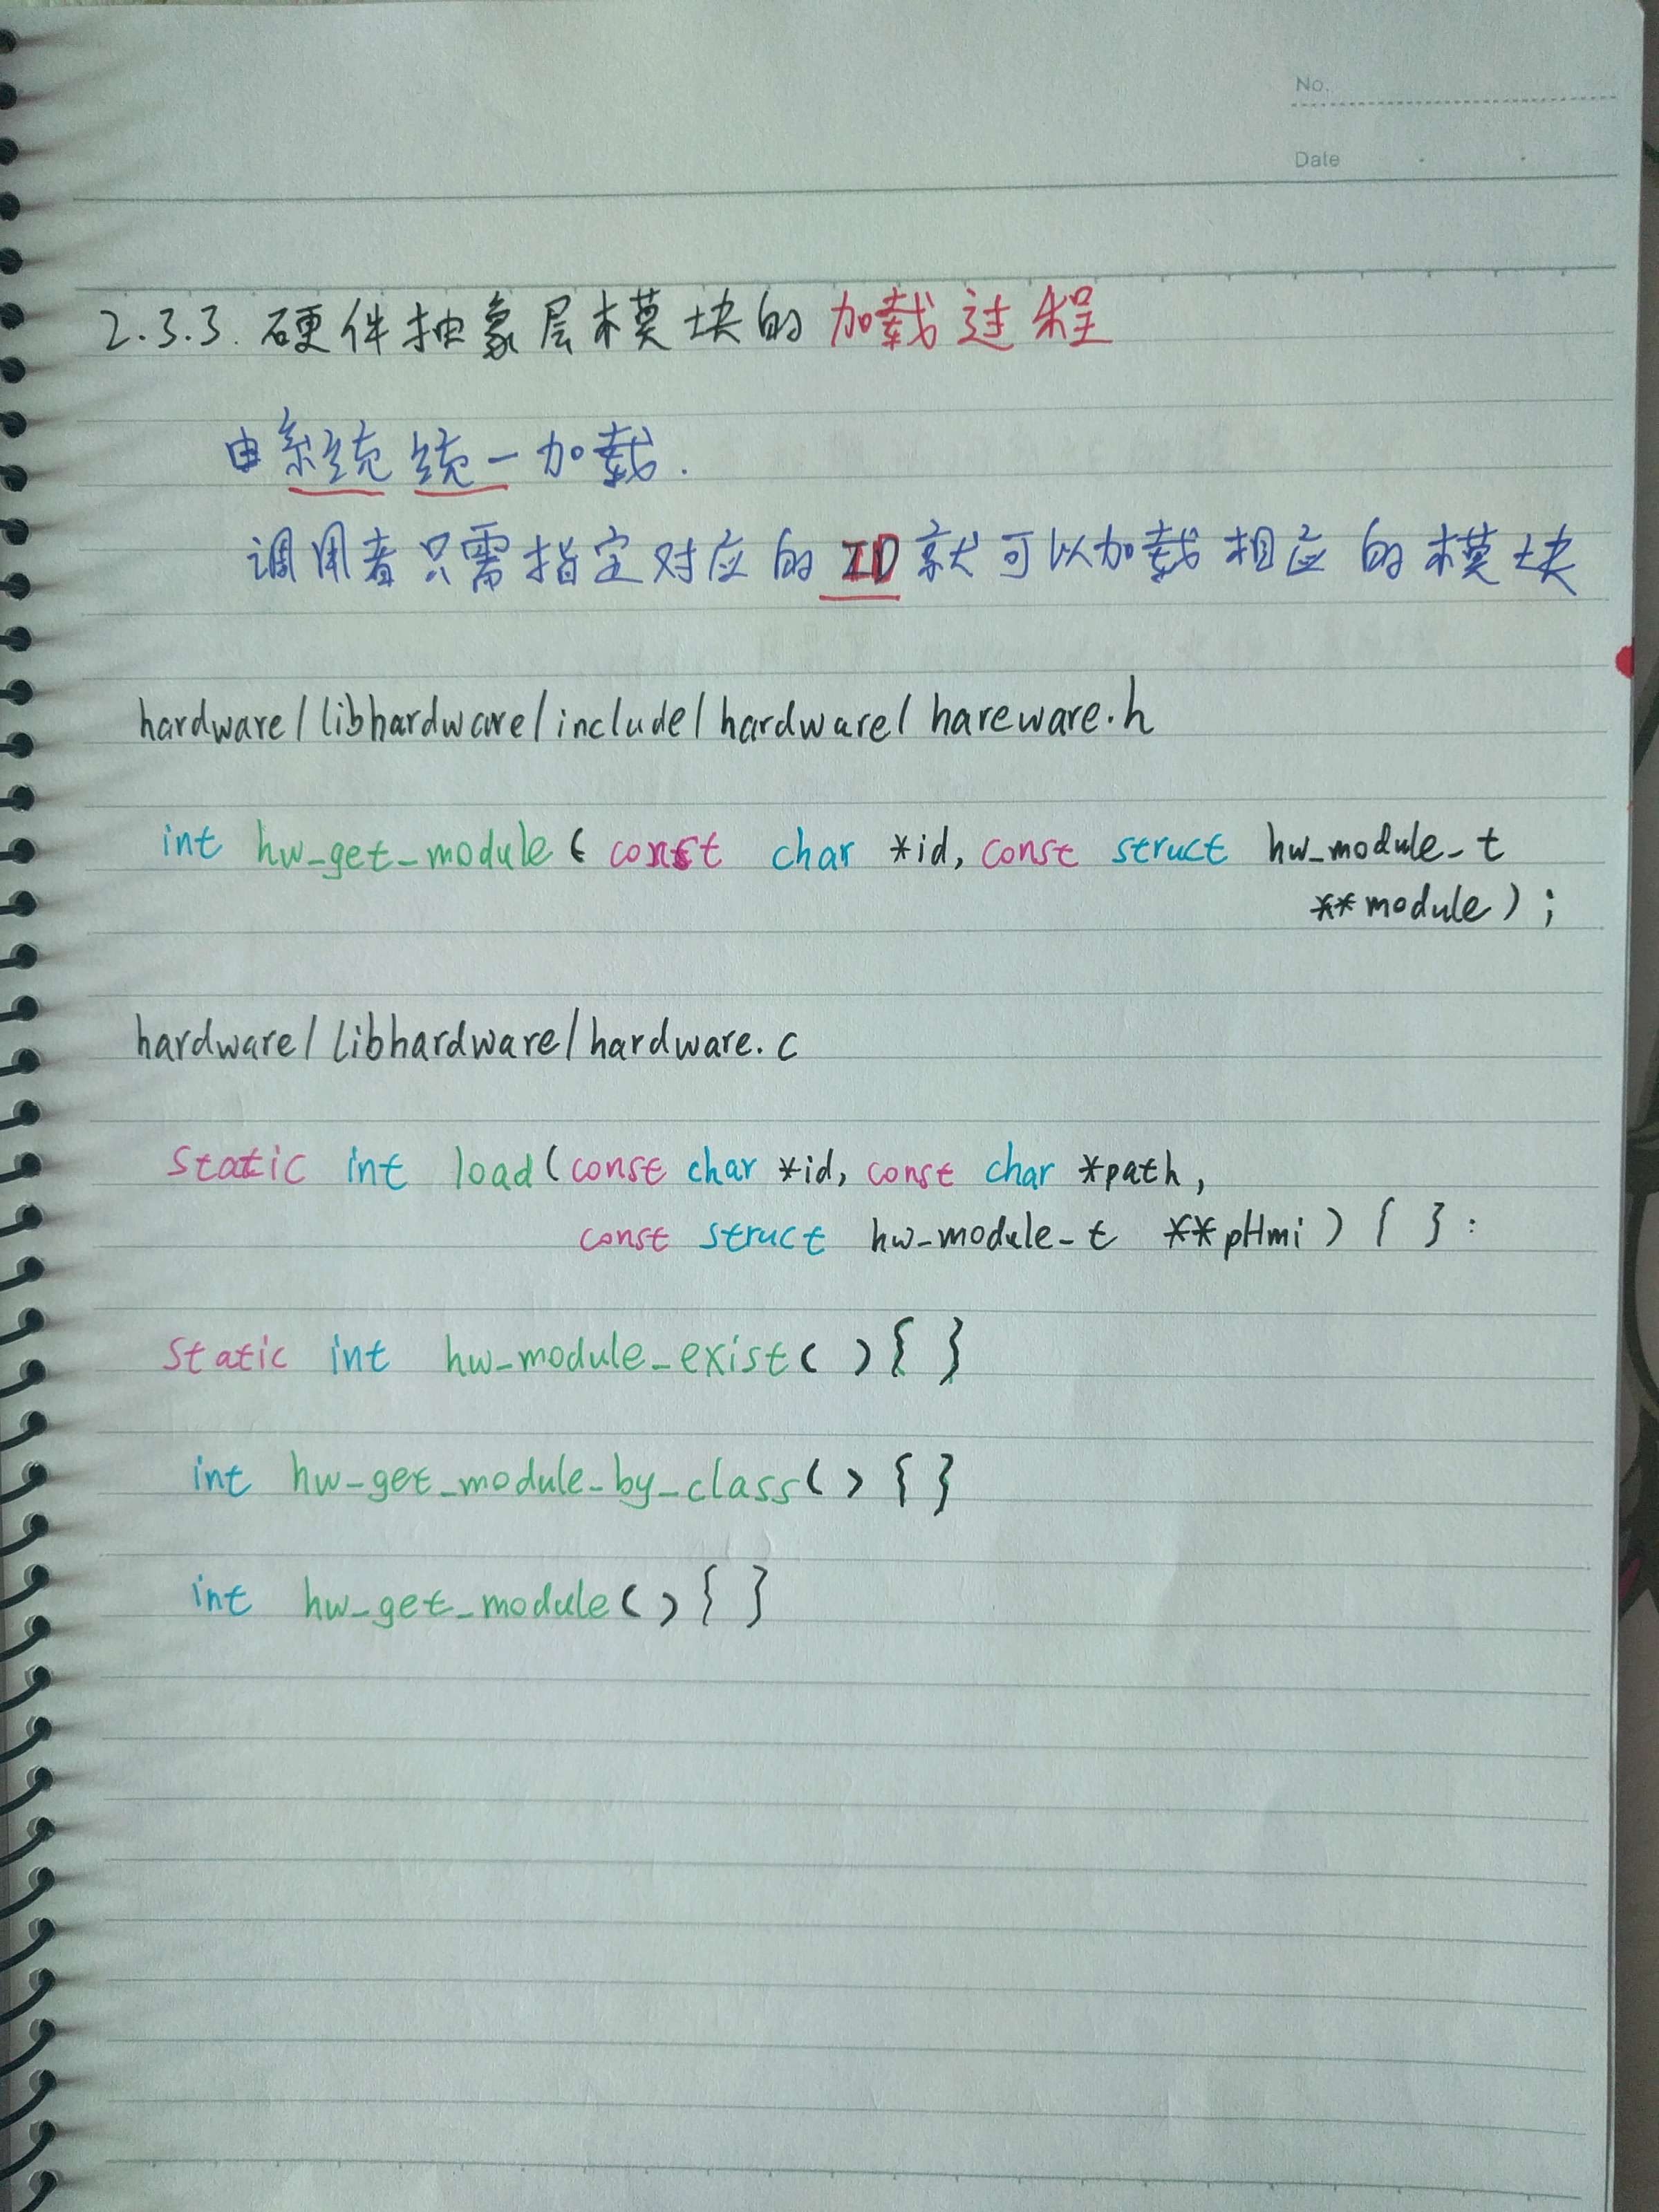 No.
Date
2.3.3. 硬件抽象层模块的加载过程
由系统统一加载.
调用者只需指定对应的ID就可以加载相应的模块
hardware/libhardware/include/hardware/hareware.h
int hw_get_module(const char *id, const struct hw_module_t
**module);
hardware/libhardware/hardware.c
static int load(const char *id, const char *path,
const struct hw_module_t **pHmi) { }:
static int hw_module_exist() { }
int hw_get_module_by_class() { }
int hw_get_module() { }